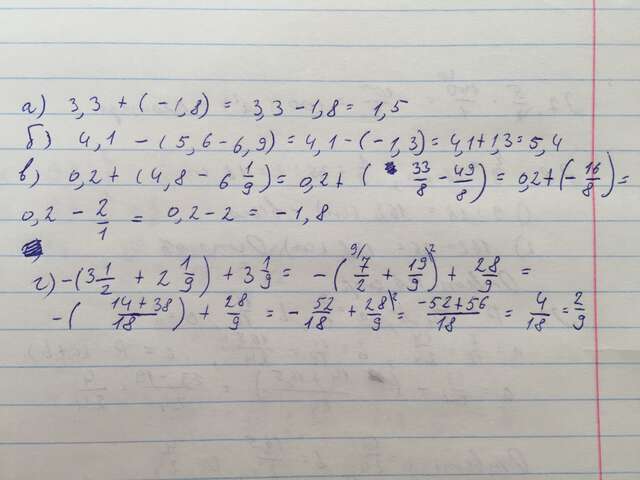 а) 3,3 + (-1,8) = 3,3 - 1,8 = 1,5
б) 4,1 - (5,6 - 6,9) = 4,1 - (-1,3) = 4,1 + 1,3 = 5,4
в) 0,2 + (4,8 - 6 1/9) = 0,2 + ( 33/8 - 49/8) = 0,2 + (- 16/8) =
0,2 - 2/1 = 0,2 - 2 = -1,8
г) -(3 1/2 + 2 1/9) + 3 1/9 = -( 9/ 7/2 + 19/9 \2) + 28/9 =
-( 14+38/18 ) + 28/9 = - 52/18 + 28/9 \2 = -52+56/18 = 4/18 = 2/9